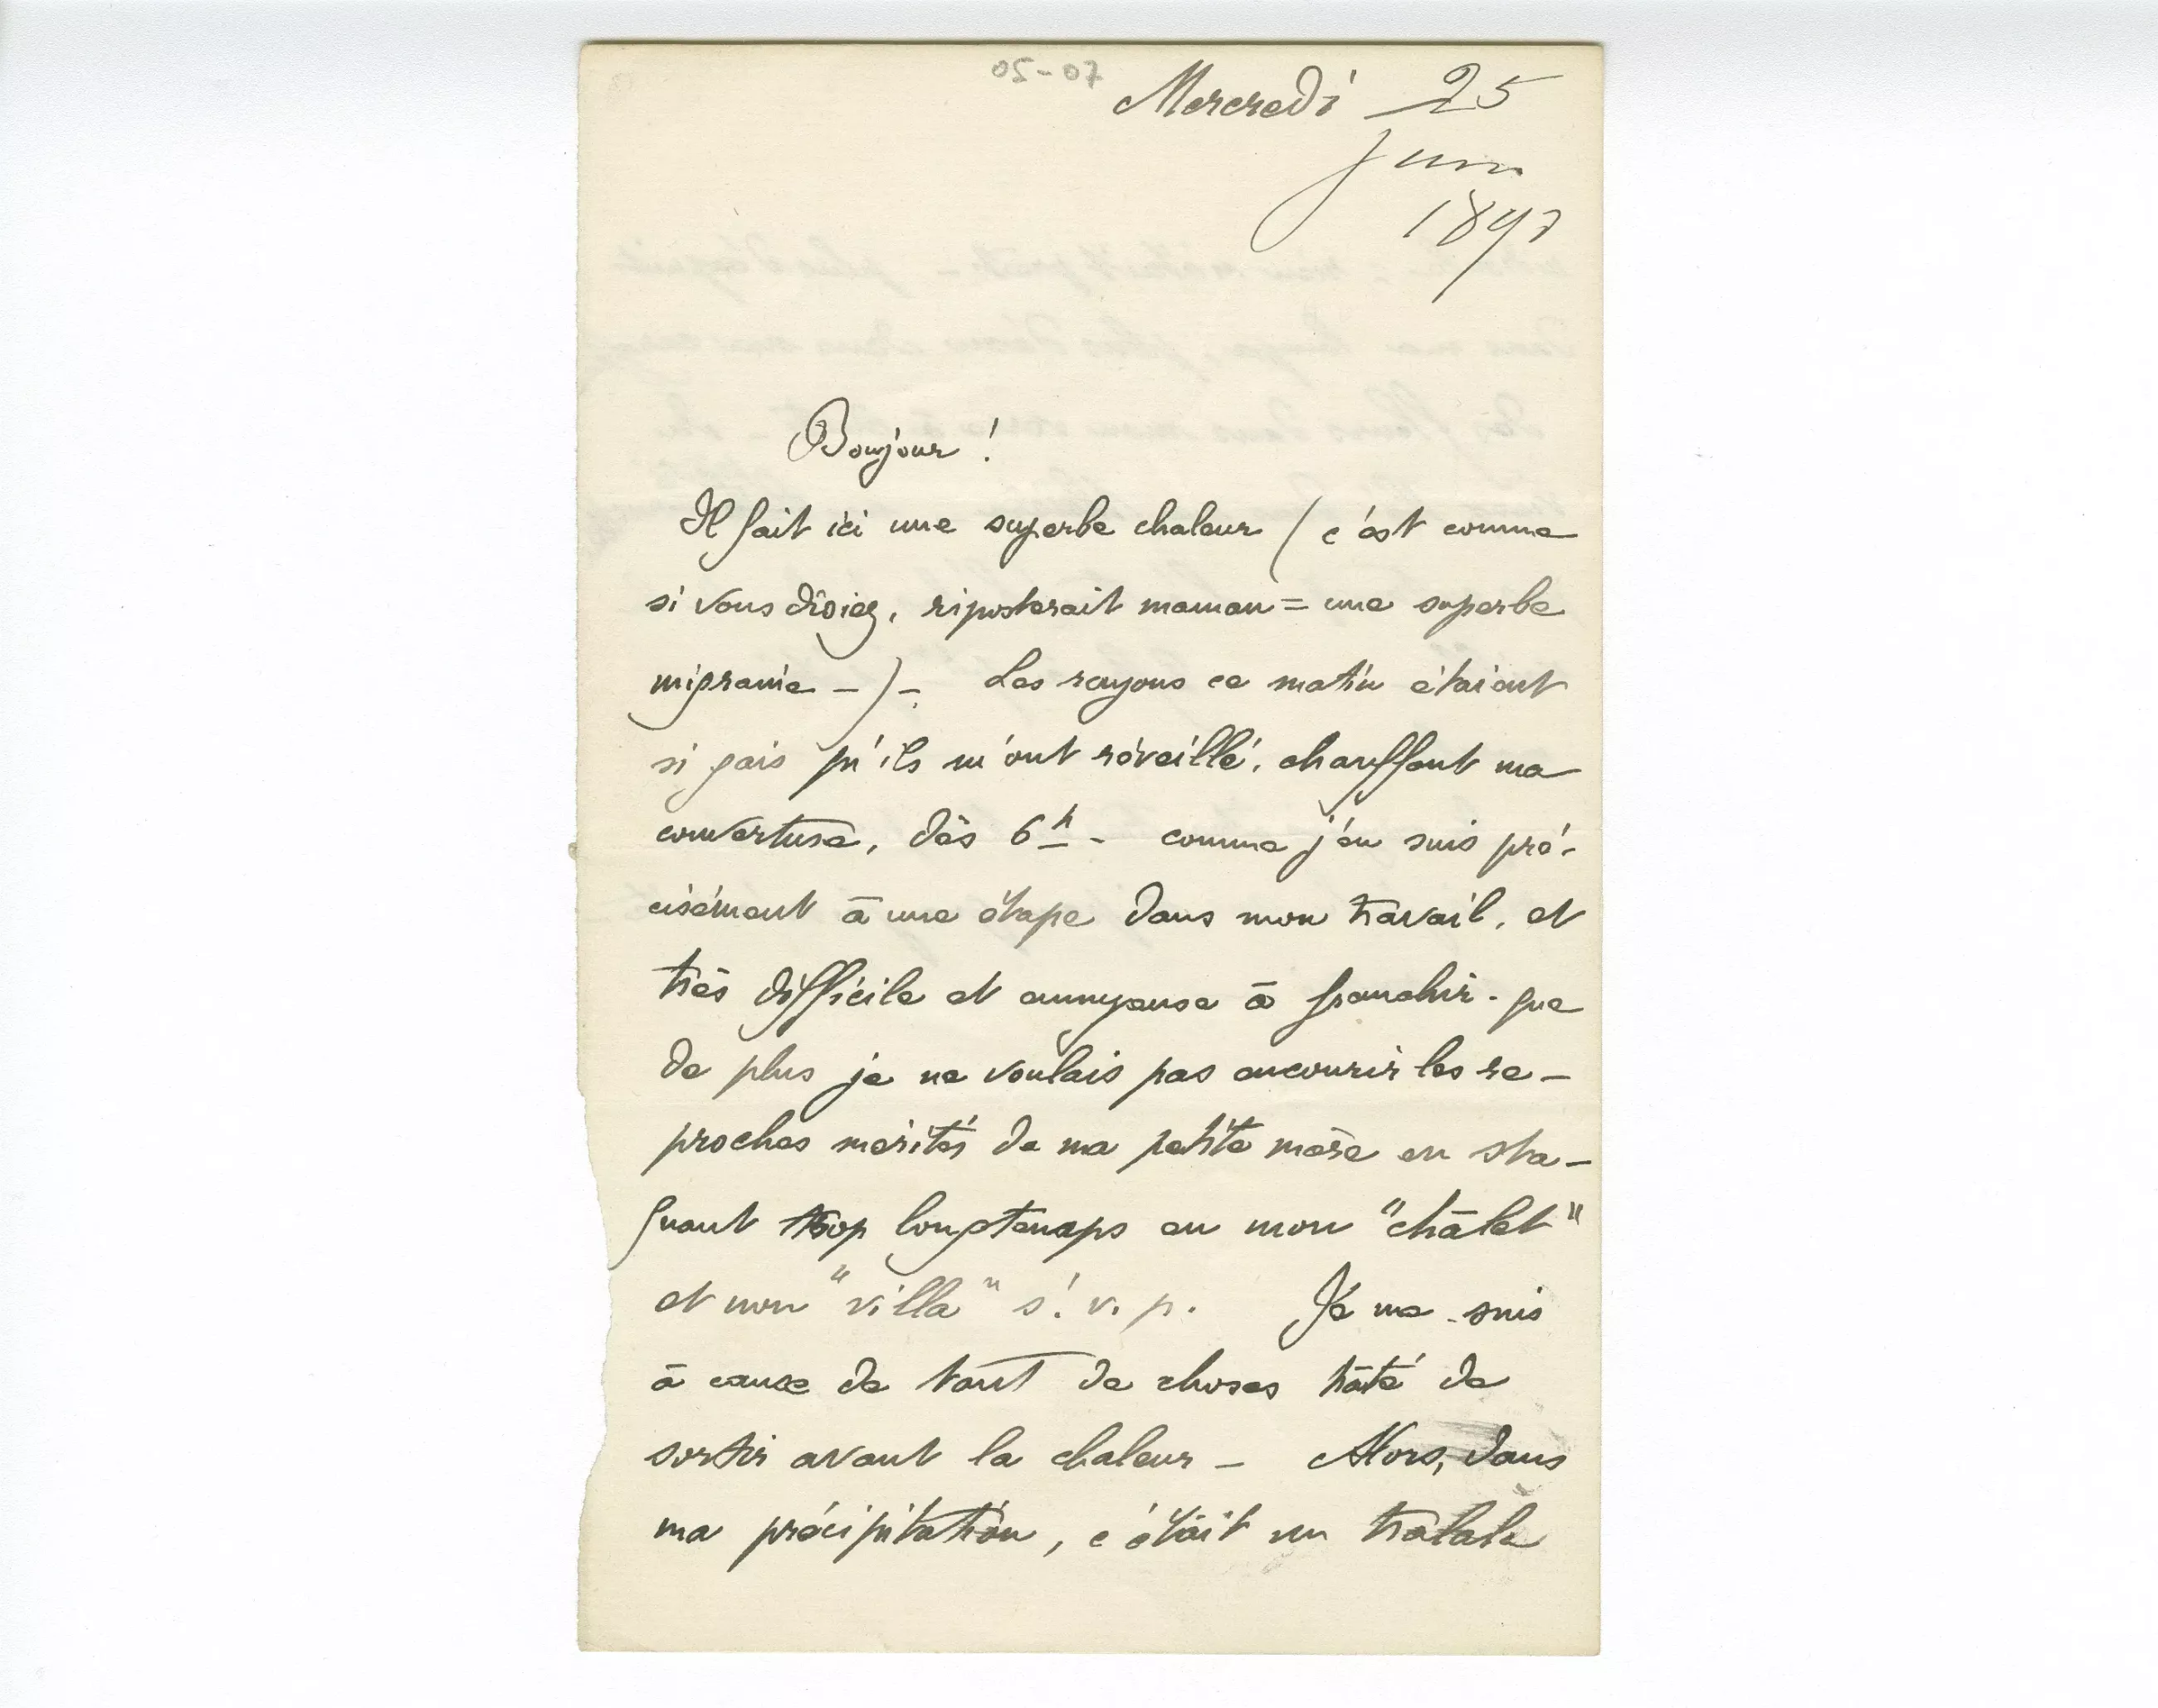 05-07
Mercredi 25
Juin
189
Bonjour !
Il fait ici une superbe chaleur ( c'est comme
si vous disiez, riposterait maman = une superbe
migraine - ) - Les rayons ce matin étaient
si gais qu'ils m'ont réveillé, chauffant ma
couverture, dès 6h - comme j'en suis pré-
cisément à une étape dans mon travail, et
très difficile et ennuyeuse à franchir - que
de plus je ne voulais pas encourir les re-
proches mérités de ma petite mère en sta-
gnant trop longtemps en mon "châlet"
et non "villa" s. v. p. Je me suis
à cause de tant de choses hâté de
sortir avant la chaleur - Alors, dans
ma précipitation, c'était un tralala